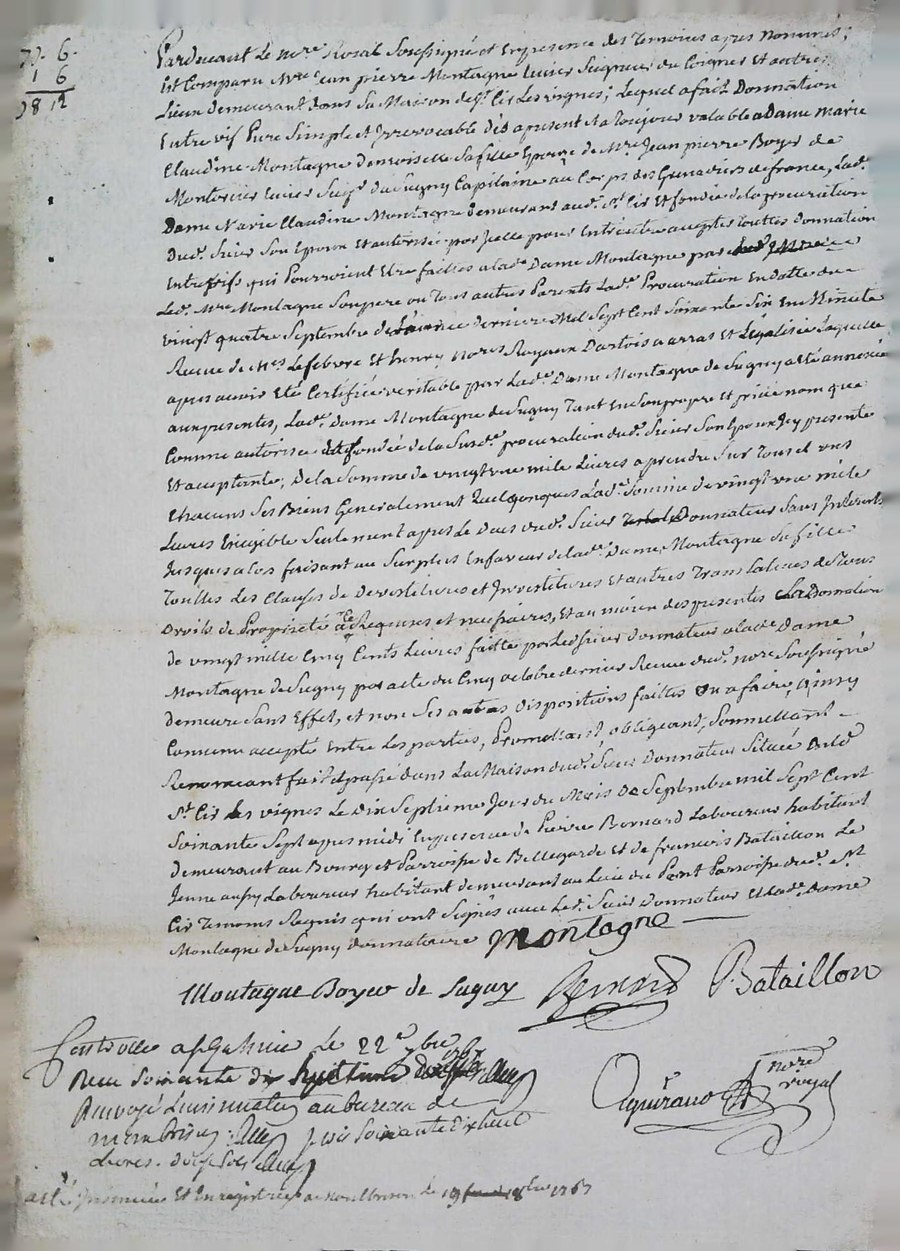 70. 6.
1 6
98 12
Pardevant Le nore. Royal Soussigné et En presence des Temoins apres Nommés;
Est Comparu Mre. Jean pierre Montagne Ecuier Seigneur du Poignes et autres
Lieux demeurant dans Sa Maison de St. Cir Les vignes; Lequel a fait Donnation
Entre vif Pure Simple et Irrevocable dès apresent et a Toujour valable a Dame Marie
Claudine Montagne Demoiselle Sa fille Epouze de Mre. Jean pierre Boyer de
Montorcier Ecuier Seigr. du Sugny Capitaine au Corps des Grenadiers de france, Lade.
Dame Marie Claudine Montagne demeurant aud. St. Cir Et fondée de la procuration
Dud. Sieur Son Epoux Et autorisée par Icelle pour Entre autre accepter touttes Donnation
Entre vifs qui Pourroient Etre faittes a lade. Dame Montagne par
Led. Mre. Montagne Son pere ou Tous autres Parents Lade. Procuration En datte du
vingt quatre Septembre de L'année derniere Mil Sept Cent Soixante Six En Minutte
Recue de Mes. Lefebvre Et henry Nores. Royaux Dartois a arras et Légalisée Laquelle
apres avoir Eté Certifiée veritable par Lade. Dame Montagne de Sugny a eté annexée
aux presentes, Lade. Dame Montagne de Sugny Tant En Son propre et privé nom que
Comme autorisée et fondée de la Susde. procuration dud. Sieur Son Epoux Icy presente
Et acceptante; De la Somme de vingt une mile Livres a prendre Sur Tous et uns
Chacuns Ses Biens Generalement Quelconques Lade. Somme de vingt une mile
Livres Exigible Seulement apres Le Deces dud. Sieur Donnateur Sans Interets
Jusques alors faisant au Surplus En faveur de lade. Dame Montagne Sa fille
Touttes Les Clauses de Devestitures et Investitures Et autres Translatives de Tous
Droits de Propriété a Ce Requises et necessaires, Et au moien des presentes La Donnation
de vingt mille Cinq Cents Livres faitte par Led. Sieur donnateur a lade Dame
Montagne de Sugny par acte du Cinq octobre dernier Recue dud. nore. Soussigné
demeure Sans Effet, et non Ses autres Dispositions faittes ou a faire, Ainsy
Convenu accepté Entre Les parties, Promettant obligeant, Soumettant
Renonceant fait et passé dans La Maison dud. Sieur Donnateur Située aud.
St. Cir Les vignes Le Dix Septieme Jour du Mois de Septembre mil Sept Cent
Soixante Sept apres midi En presence de Pierre Bernard Laboureur habitant
demeurant au Bourg et Parroisse de Bellegarde Et de francois Bataillon Le
Jeune aussy Laboureur habitant demeurant au Lieu du Pont Parroisse dud. St
Cir Temoins Requis qui ont Signés avec Led. Sieur Donnateur Et lade. Dame
Montagne de Sugny donnataire Montagne
Montagne Boyer de Sugny Bernard Bataillon
Controllé a St Galmier Le 22e 7bre
Recu Soixante dix
Renvoyé L'insinuation au bureau de
Montbrison
Livres. Douze Sols
nore. royal
a eté Insinuée Et Enregistrée a Montbrison Le 19 8bre 1767